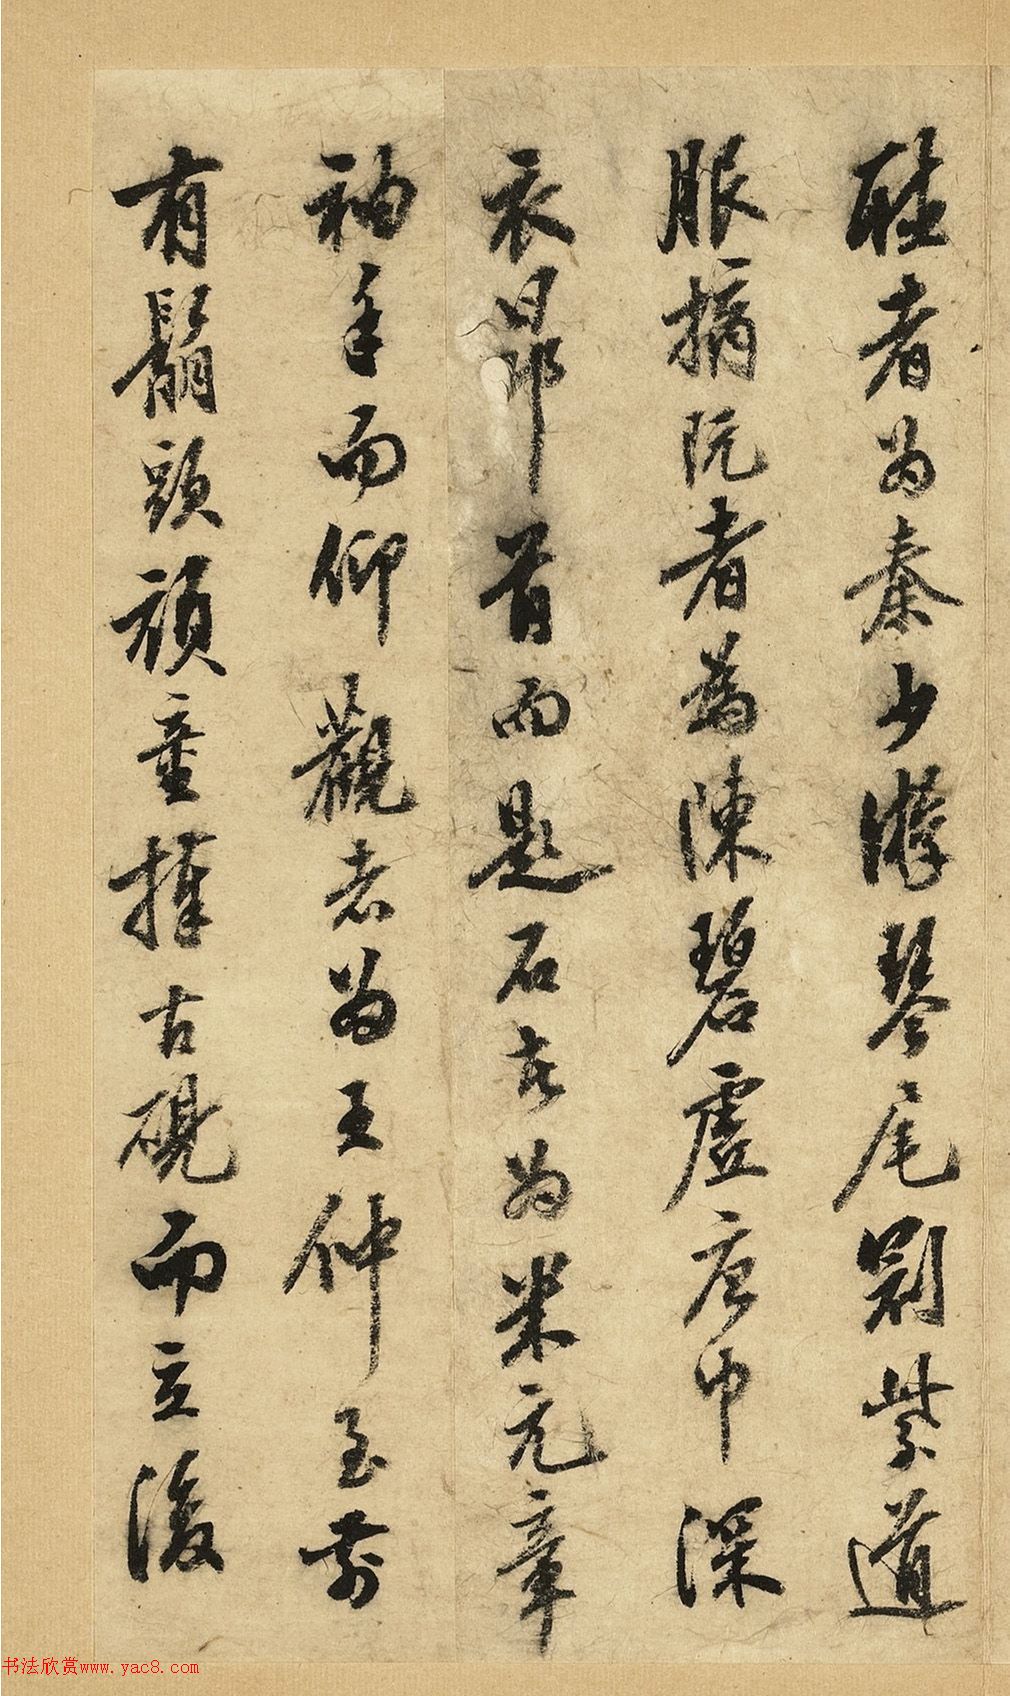 聽者為秦少游琴尾別紫道
服摘阮者為陳碧虛唐巾深
衣昂首而題石者為米元章
袖手而仰觀者為王仲至前
有鬅頭頑童捧古硯而立後
书法欣赏www.yac8.com